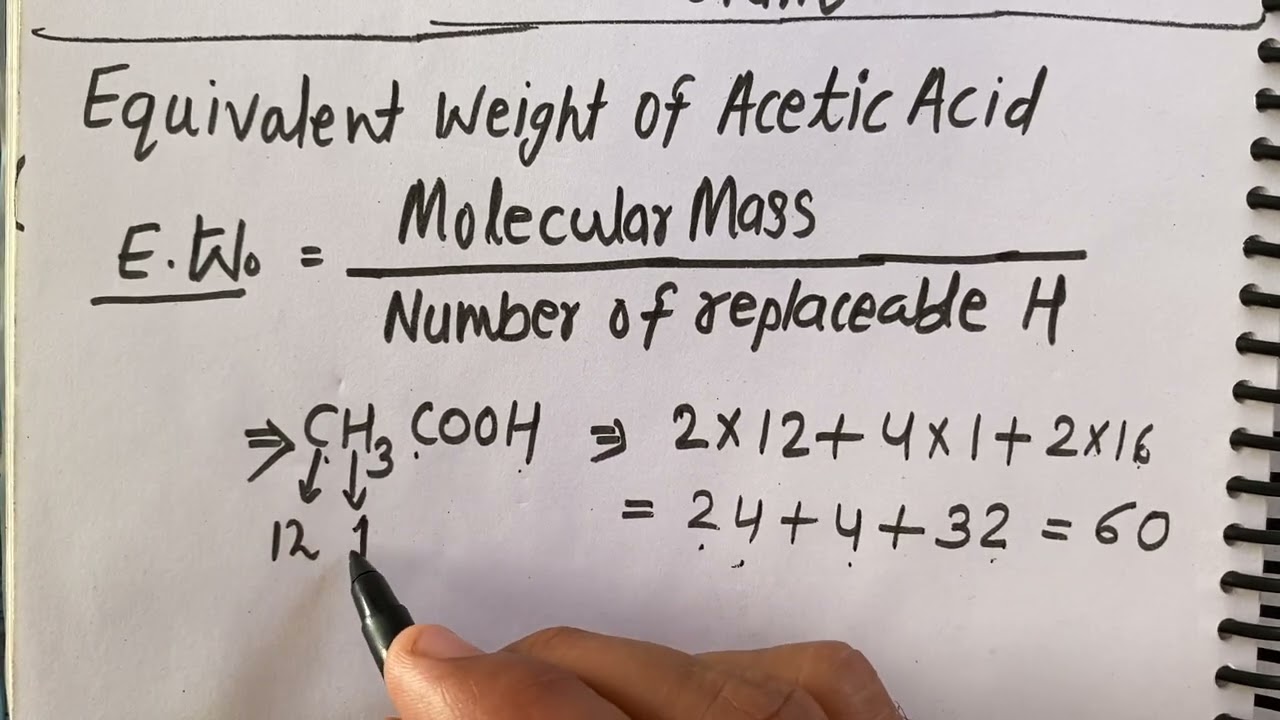 Equivalent Weight of Acetic Acid
E.W. = Molecular Mass
Number of replaceable H
⇒ CH₃COOH ⇒ 2×12+4×1+2×16
12 1
= 24+4+32 = 60